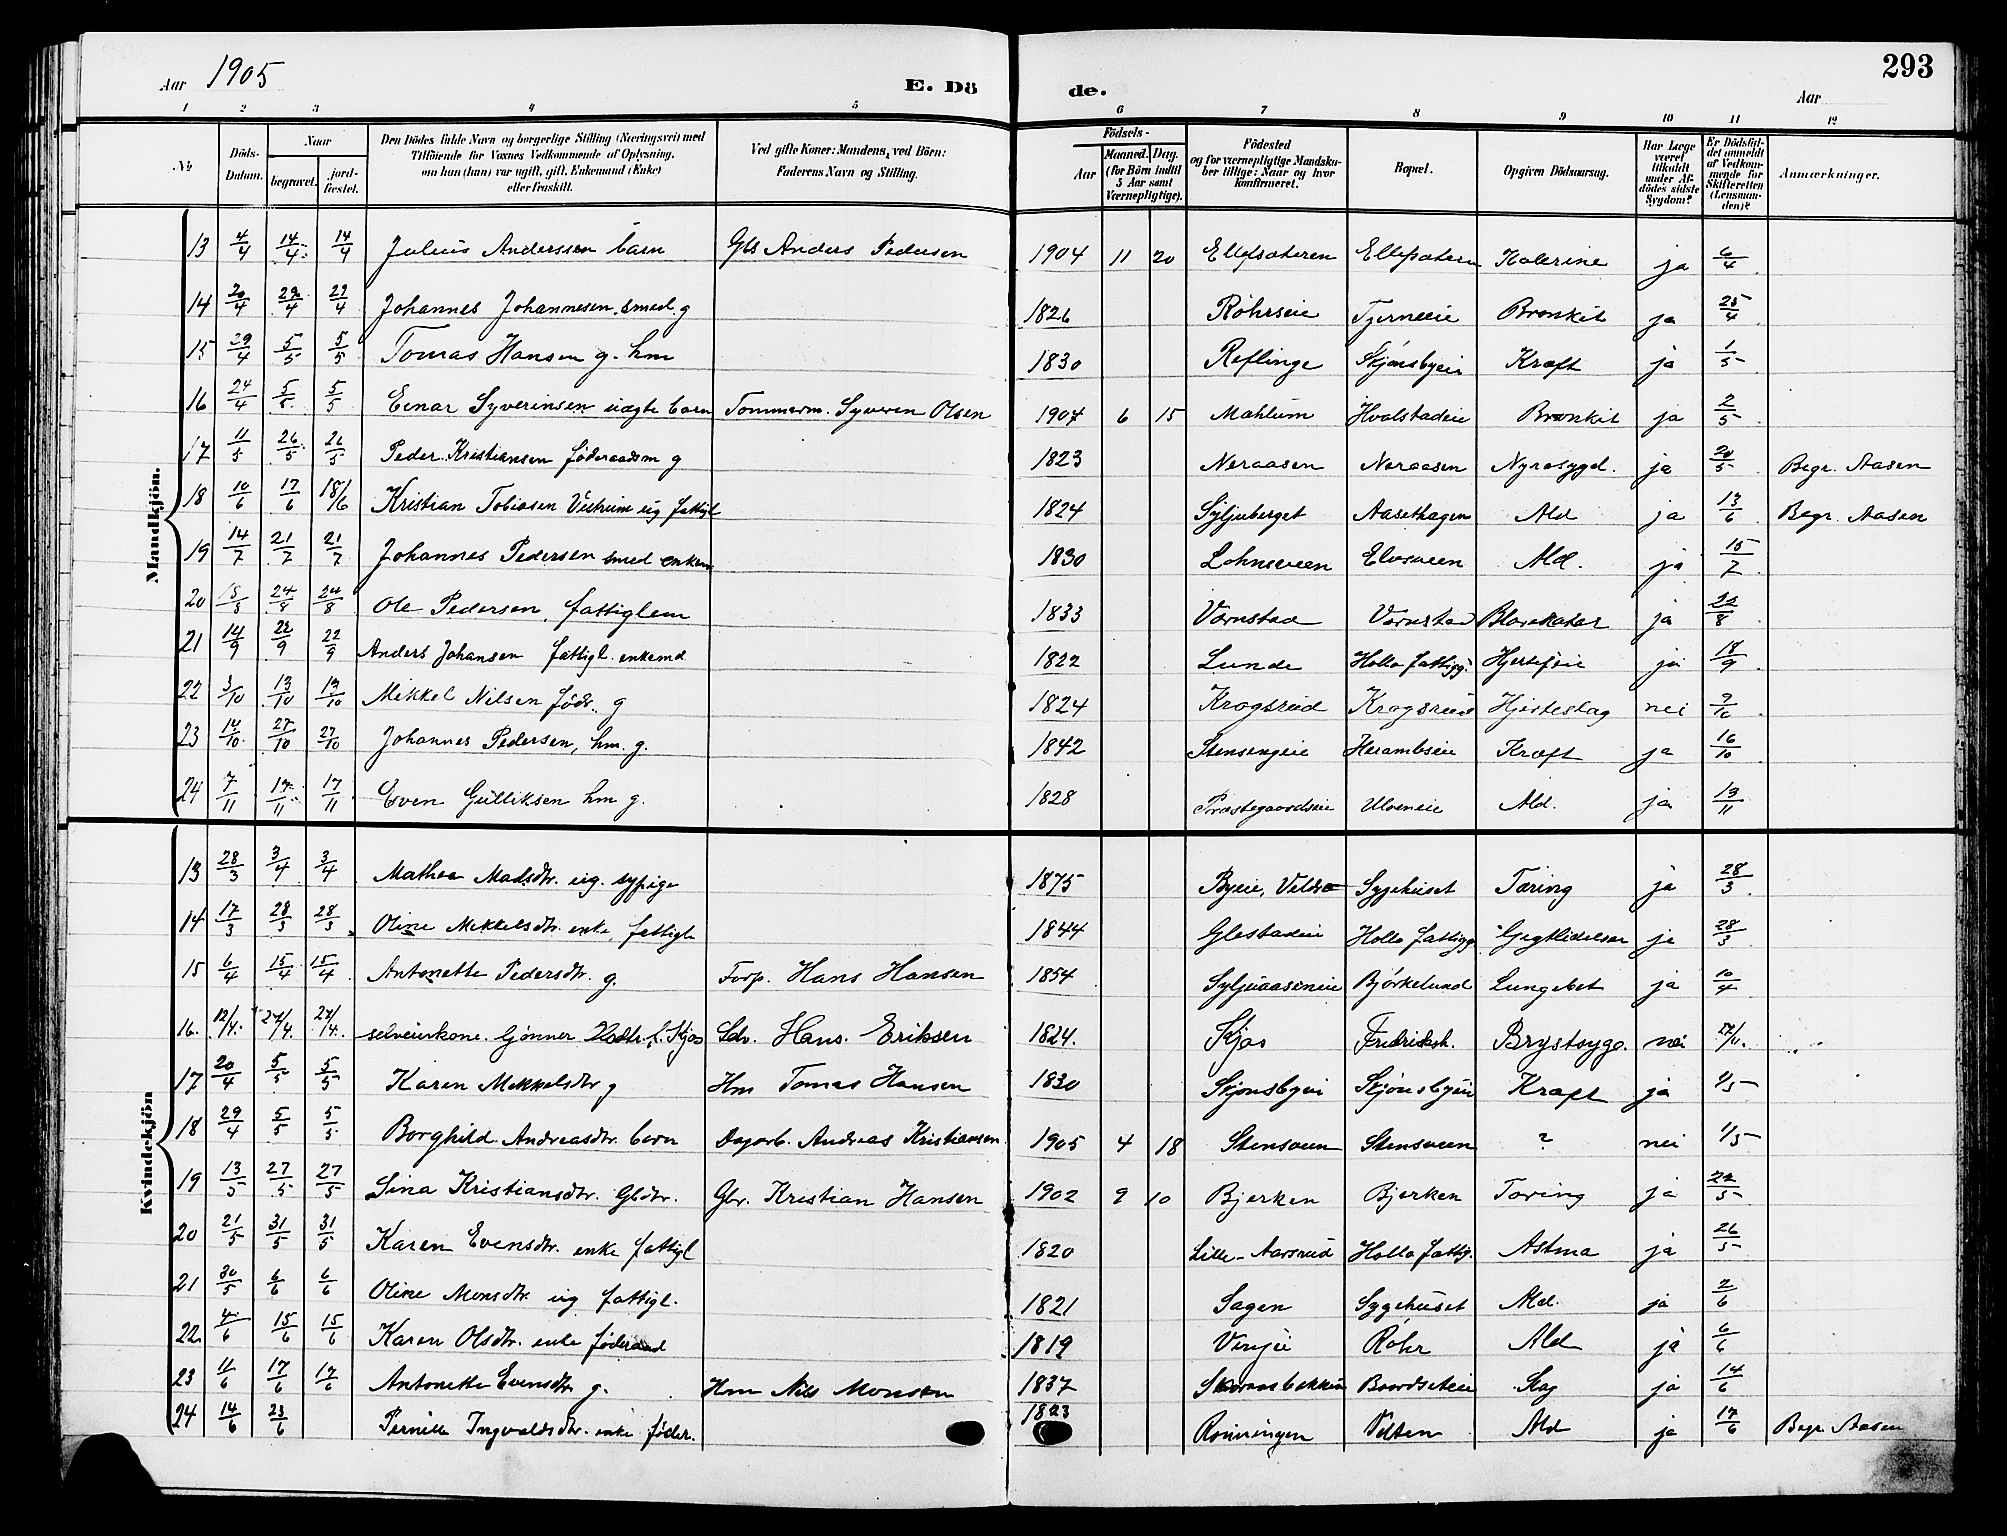 293
Aar 1905
E. Dö
de.
Aar
1 2 3 4 5 6 7 8 9 10 11 12
No
Döds-Datum.
Naar
begravet.
jord-fæstet.
Den Dödes fulde Navn og borgerlige Stilling (Næringsvei) med Tilföiende for Voxnes Vedkommende af Oplysning, om han (hun) var ugift, gift, Enkemand (Enke) eller fraskilt.
Ved gifte Koner: Mandens, ved Börn: Faderens Navn og Stilling.
Födsels-
Aar
Maaned. Dag.
(for Börn indtil 5 Aar samt Værnepligtige).
Födested og for værnepligtige Mandskaber tillige: Naar og hvor konfirmeret.
Bopæl.
Opgiven Dödsaarsag.
Har Læge været tilkaldt under Afdödes sidste Sygdom?
Er Dödsfaldet anmeldt af Vedkommende for Skifteretten (Lensmanden)?
Anmærkninger.
Mandkjön.
13 4/4 14/4 14/4 Julius Anderssen barn Gbs Anders Pedersen 1904 11 20 Ellefsæteren Ellefsæteren Kolerine ja 6/4
14 20/4 29/4 29/4 Johannes Johannesen smed g 1826 Röhrseie Tjerneeie Bronkit ja 25/4
15 29/4 5/5 5/5 Tomas Hansen g. hm 1830 Reflinge Skjönsbyeie Kræft ja 1/5
16 24/4 5/5 5/5 Einar Syverinsen uægte barn Tommerm. Syverin Olsen 1904 6 15 Mæhlum Hvalstadeie Bronkit ja 2/5
17 11/5 26/5 26/5 Peder Kristiansen föderaadsm g 1823 Neraasen Neraasen Nyresygd. ja 20/5 Begr. Aasen
18 10/6 17/6 18/6 Kristian Tobiasen ug fattigl 1824 Syljuberget Aasethagen Ald ja 13/6 Begr. Aasen
19 14/7 21/7 21/7 Johannes Pedersen smed enkem 1830 Lohnsveen Elvsveen Ald. ja 15/7
20 24/8 24/8 Ole Pedersen, fattiglem 1833 Værnstad Værnstad Blærekatar ja /8
21 14/9 22/9 22/9 Anders Johansen fattigl. enkemd 1822 Lunde Holla fattigg. Hjertefeie ja 18/9
22 3/10 13/10 13/10 Mikkel Nilsen födr. g 1824 Krogsrud Krogsrud Hjerteslag nei 7/10
23 14/10 27/10 27/10 Johannes Pedersen, hm. g. 1842 Stensengeie Herambseie Kræft ja 16/10
24 7/11 17/11 17/11 Even Gulliksen hm g. 1828 Præstegaardseie Ulveneie Ald. ja 13/11
Kvindekjön
13 28/3 3/4 3/4 Mathea Madsdtr. ug. sypige 1875 Byeie, Veldre Sygehuset Tæring ja 28/3
14 17/3 28/3 28/3 Oline Mikkelsdtr. enke, fattigl 1844 Glestadeie Holla fattigg Gigtlidelser ja 28/3
15 6/4 15/4 15/4 Antonette Pedersdtr. g. Forp. Hans Hansen 1854 Syljuaaseneie Björkelund Lungebet ja 10/4
16. 12/4. 27/4. 27/4. selveierkone Gjönner f. Kjos Selv. Hans Eriksen 1824. Kjos Fredriksh. Brystsyge. nei
17 20/4 5/5 5/5 Karen Mikkelsdtr g Hm Tomas Hansen 1830 Skjönsbyei Skjönsbyeie Kræft ja 1/5
18 29/4 5/5 5/5 Borghild Andreasdtr. barn Dagarb. Andreas Kristiansen 1905 4 18 Stensveen Stensveen ? nei 1/5
19 13/5 27/5 27/5 Sina Kristiansdtr. Gbdtr. Gbr. Kristian Hansen 1902 9 10 Bjerken Bjerken Tæring ja 22/5
20 21/5 31/5 31/5 Karen Evensdtr. enke fattigl 1820 Lille-Aarsrud Holla fattig. Astma ja 26/5
21 30/5 6/6 6/6 Oline Monsdtr. ug fattigl. 1821 Sagen Sygehuset Ald. ja 2/6
22 4/6 15/6 15/6 Karen Olsdtr. enke föderaad 1819 Röhr Ald ja 6/6
23 11/6 17/6 17/6 Antonette Evensdtr. g. Hm Nils Monsen 1837 Baardseteie Slag ja 14/6
24 14/6 23/6 Pernille Ingvaldsdtr. enke föder. 1823 Rönningen Velten Ald ja 17/6 Begr Aasen